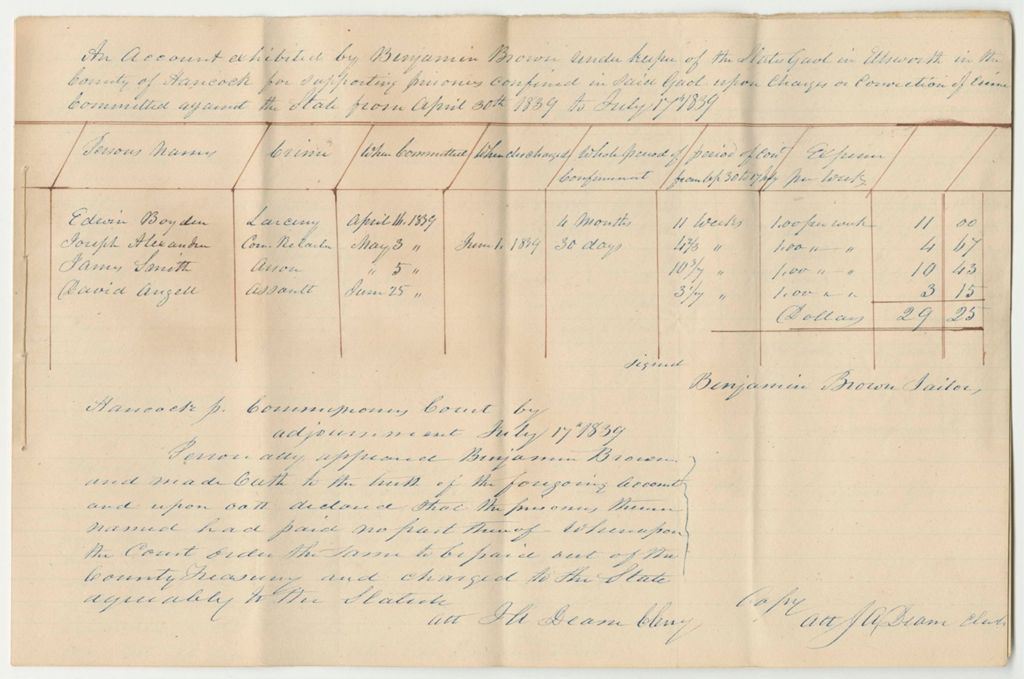 An Account exhibited by Benjamin Brown under keeper of the State Gaol in Ellsworth in the
County of Hancock for supporting prisoners confined in said Gaol upon Charges or Conviction of Crime
Committed against the State from April 30th 1839 to July 17th 1839
Persons Names Crime When Committed When discharged Whole period of Confinement period of Con from Ap 30 to 17 July Expense per Week
Edwin Boyden Larceny April 16. 1839 4 Months 11 Weeks 1.00 per week 11 00
Joseph Alexander Com. Retailer May 3 " June 1. 1839 30 days 4 2/3 " 1.00 " " 4 67
James Smith Arson " 5 " 10 3/7 " 1.00 " " 10 43
David Angell Assault June 25 " 3 1/7 " 1.00 " " 3 15
Dollars 29 25
signed
Benjamin Brown Jailor
Hancock ss. Commissioners Court by
adjournment July 17th 1839
Personally appeared Benjamin Brown
and made Oath to the truth of the foregoing account
and upon oath declared that the prisoners therein
named had paid no part thereof Whereupon
the Court order the same to be paid out of the
County Treasury and charged to the State
agreeably to the Statute
att J A Deane Clerk
Copy
att J A Deane Clerk